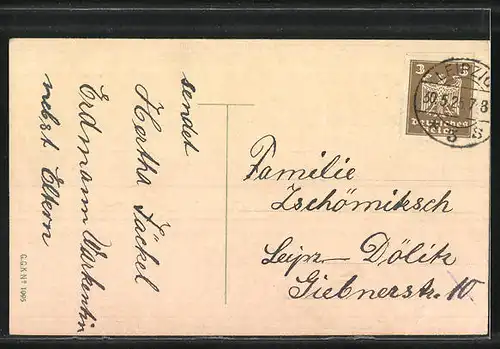 sendet
Hertha Jäckel
Erdmann Warkentin
nebst Eltern
G.G.K. Nº 1965
3 3
Deutsches
Reich
LEIPZIG
30.5.25.7-8
S 3 S
Familie
Zschömitzsch
Leipz.- Dölitz
Giebnerstr. 10.